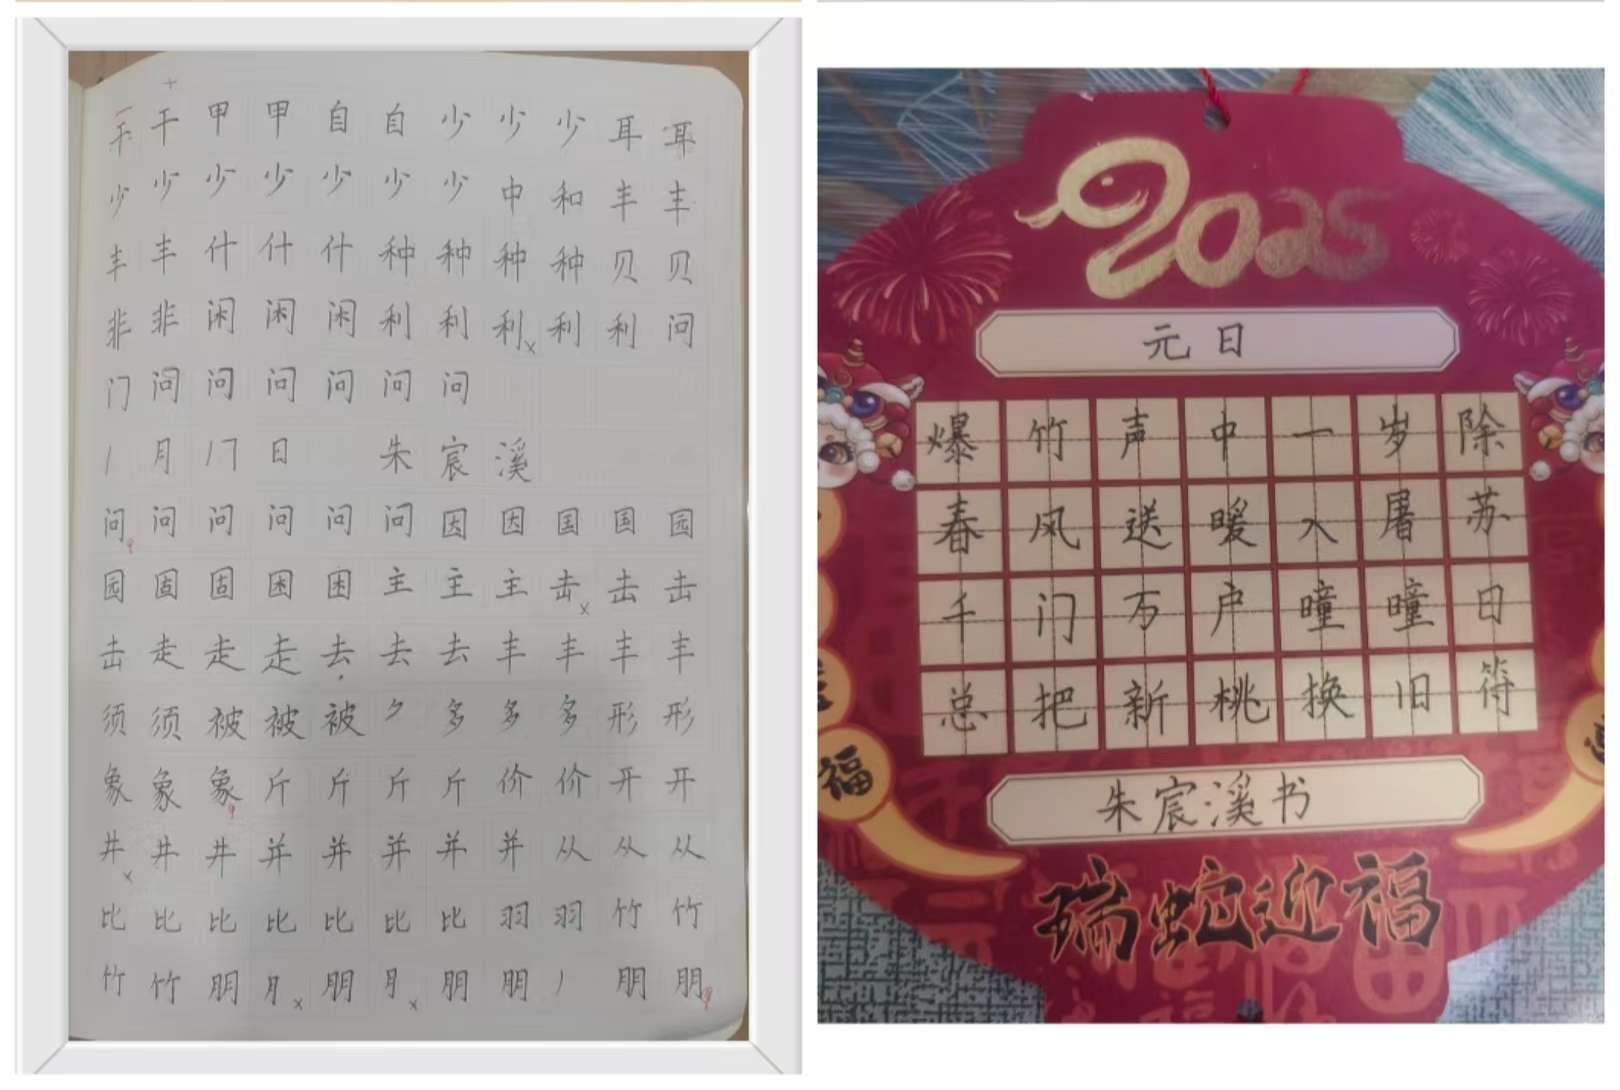 干 干 甲 甲 自 自 少 少 少 耳 耳
少 少 少 少 少 少 少 中 和 丰 丰
丰 丰 什 什 什 种 种 种 种 贝 贝
非 非 闲 闲 闲 利 利 利 利 利 问
门 问 问 问 问 问 问
1 月 17 日 朱 宸 溪
问 问 问 问 问 问 因 因 国 国 园
园 固 固 困 困 主 主 主 击 击 击
击 走 走 走 去 去 去 丰 丰 丰 丰
须 须 被 被 被 多 多 多 形 形
象 象 象 斤 斤 斤 斤 价 价 开 开
井 井 井 并 并 并 并 并 从 从 从
比 比 比 比 比 比 比 羽 羽 竹 竹
竹 竹 朋 月 朋 月 朋 朋 丿 朋 朋
2025
元日
爆竹声中一岁除
春风送暖入屠苏
千门万户曈曈日
总把新桃换旧符
朱宸溪书
福
瑞蛇迎福